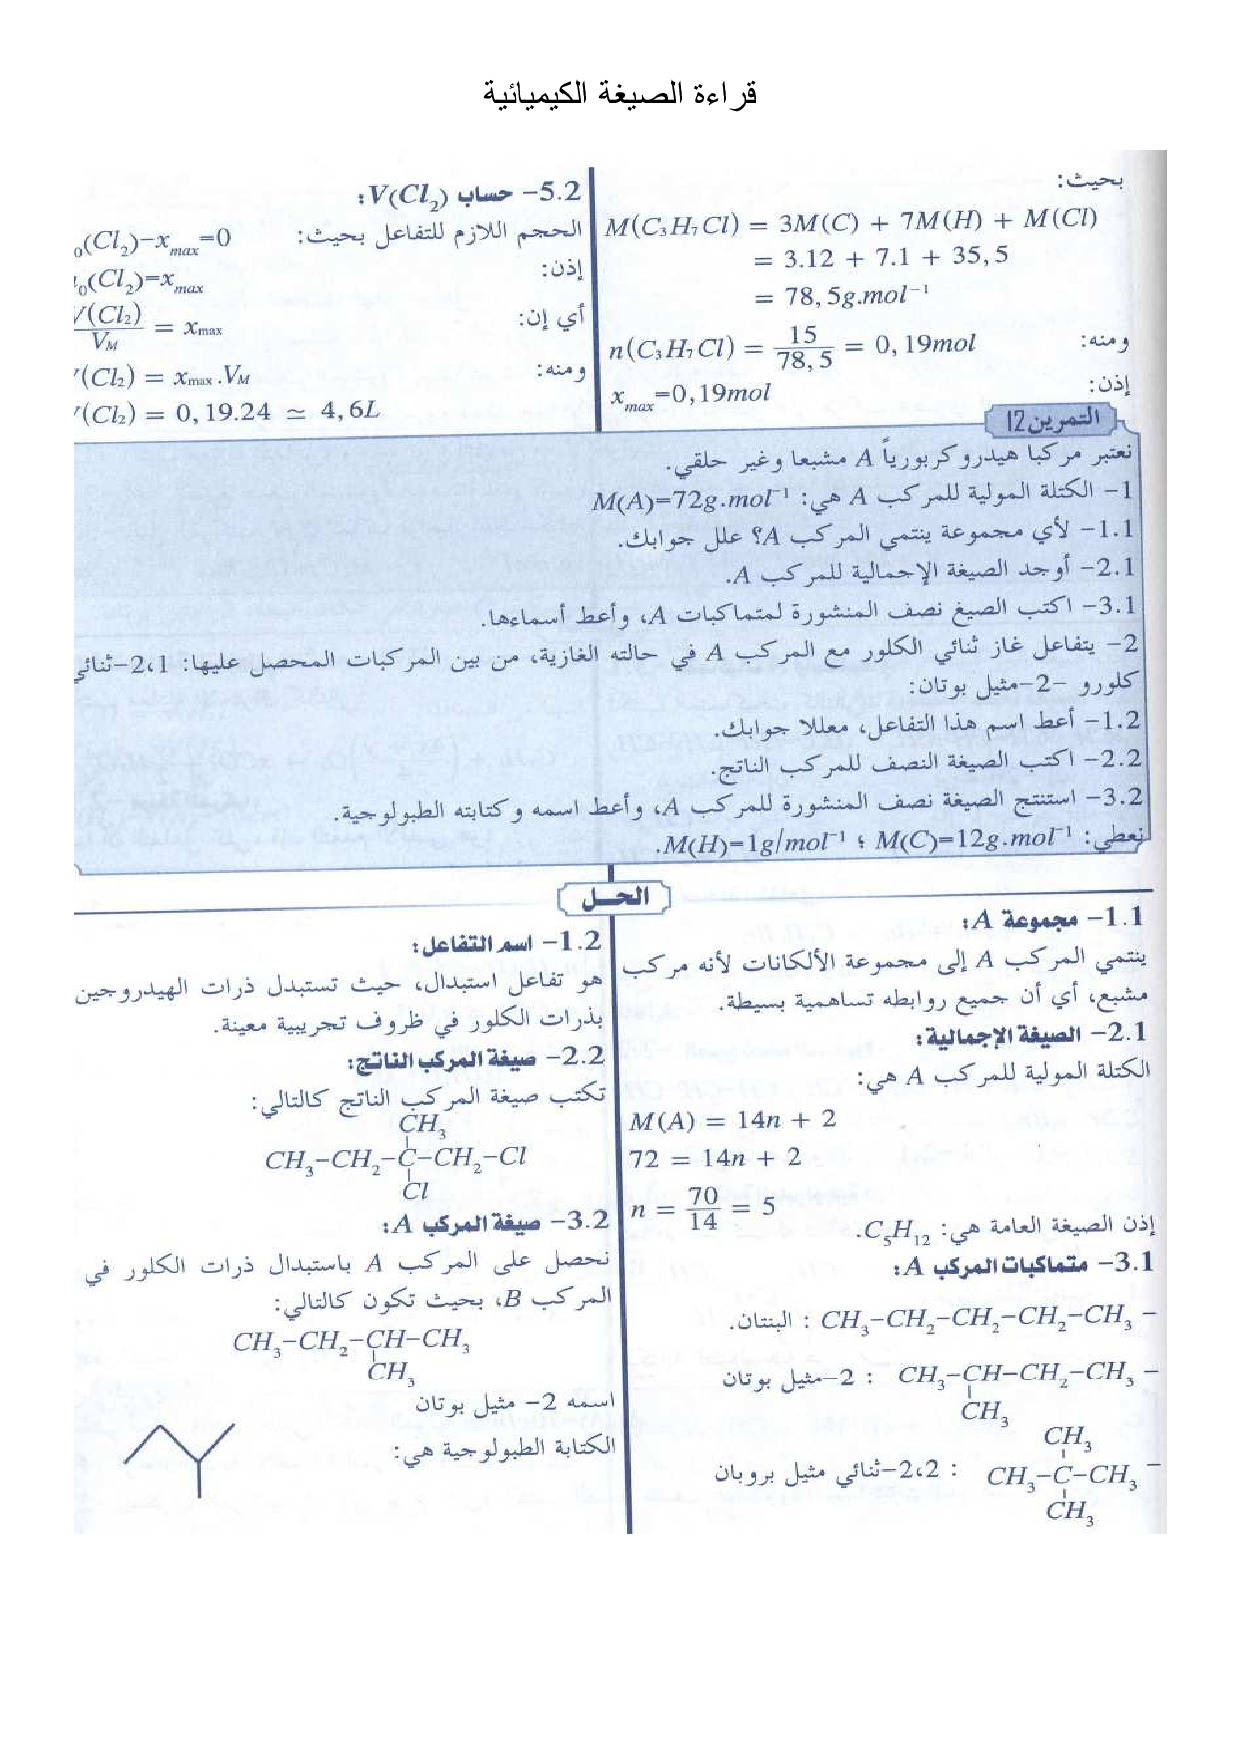 قراءة الصيغة الكيميائية
بحيث:
M(C₃H₇Cl) = 3M(C) + 7M(H) + M(Cl)
= 3.12 + 7.1 + 35,5
= 78,5g.mol⁻¹
ومنه: n(C₃H₇Cl) = 15/78,5 = 0,19mol
إذن: x_max=0,19mol
5.2– حساب V(Cl₂):
الحجم اللازم للتفاعل بحيث: ₀(Cl₂)–x_max=0
إذن: ₀(Cl₂)=x_max
أي إن: V(Cl₂)/V_M = x_max
ومنه: (Cl₂) = x_max.V_M
(Cl₂) = 0,19.24 ≃ 4,6L
التمرين 12
نعتبر مركبا هيدروكربورياً A مشبعا وغير حلقي.
1– الكتلة المولية للمركب A هي: M(A)=72g.mol⁻¹
1.1– لأي مجموعة ينتمي المركب A؟ علل جوابك.
2.1– أوجد الصيغة الإجمالية للمركب A.
3.1– اكتب الصيغ نصف المنشورة لمتماكبات A، وأعط أسماءها.
2– يتفاعل غاز ثنائي الكلور مع المركب A في حالته الغازية، من بين المركبات المحصل عليها: 2،1–ثنائي
كلورو –2–مثيل بوتان:
1.2– أعط اسم هذا التفاعل، معللا جوابك.
2.2– اكتب الصيغة النصف للمركب الناتج.
3.2– استنتج الصيغة نصف المنشورة للمركب A، وأعط اسمه وكتابته الطبولوجية.
نعطي: M(C)=12g.mol⁻¹ ؛ M(H)=1g/mol⁻¹.
الحل
1.1– مجموعة A:
ينتمي المركب A إلى مجموعة الألكانات لأنه مركب
مشبع، أي أن جميع روابطه تساهمية بسيطة.
2.1– الصيغة الإجمالية:
الكتلة المولية للمركب A هي:
M(A) = 14n + 2
72 = 14n + 2
n = 70/14 = 5
إذن الصيغة العامة هي: C₅H₁₂.
3.1– متماكبات المركب A:
– CH₃–CH₂–CH₂–CH₂–CH₃ : البنتان.
– CH₃–CH–CH₂–CH₃ : 2–مثيل بوتان
CH₃
CH₃
– CH₃–C–CH₃ : 2،2–ثنائي مثيل بروبان
CH₃
1.2– اسم التفاعل:
هو تفاعل استبدال، حيث تستبدل ذرات الهيدروجين
بذرات الكلور في ظروف تجريبية معينة.
2.2– صيغة المركب الناتج:
تكتب صيغة المركب الناتج كالتالي:
CH₃
CH₃–CH₂–C–CH₂–Cl
Cl
3.2– صيغة المركب A:
نحصل على المركب A باستبدال ذرات الكلور في
المركب B، بحيث تكون كالتالي:
CH₃–CH₂–CH–CH₃
CH₃
اسمه 2– مثيل بوتان
الكتابة الطبولوجية هي: